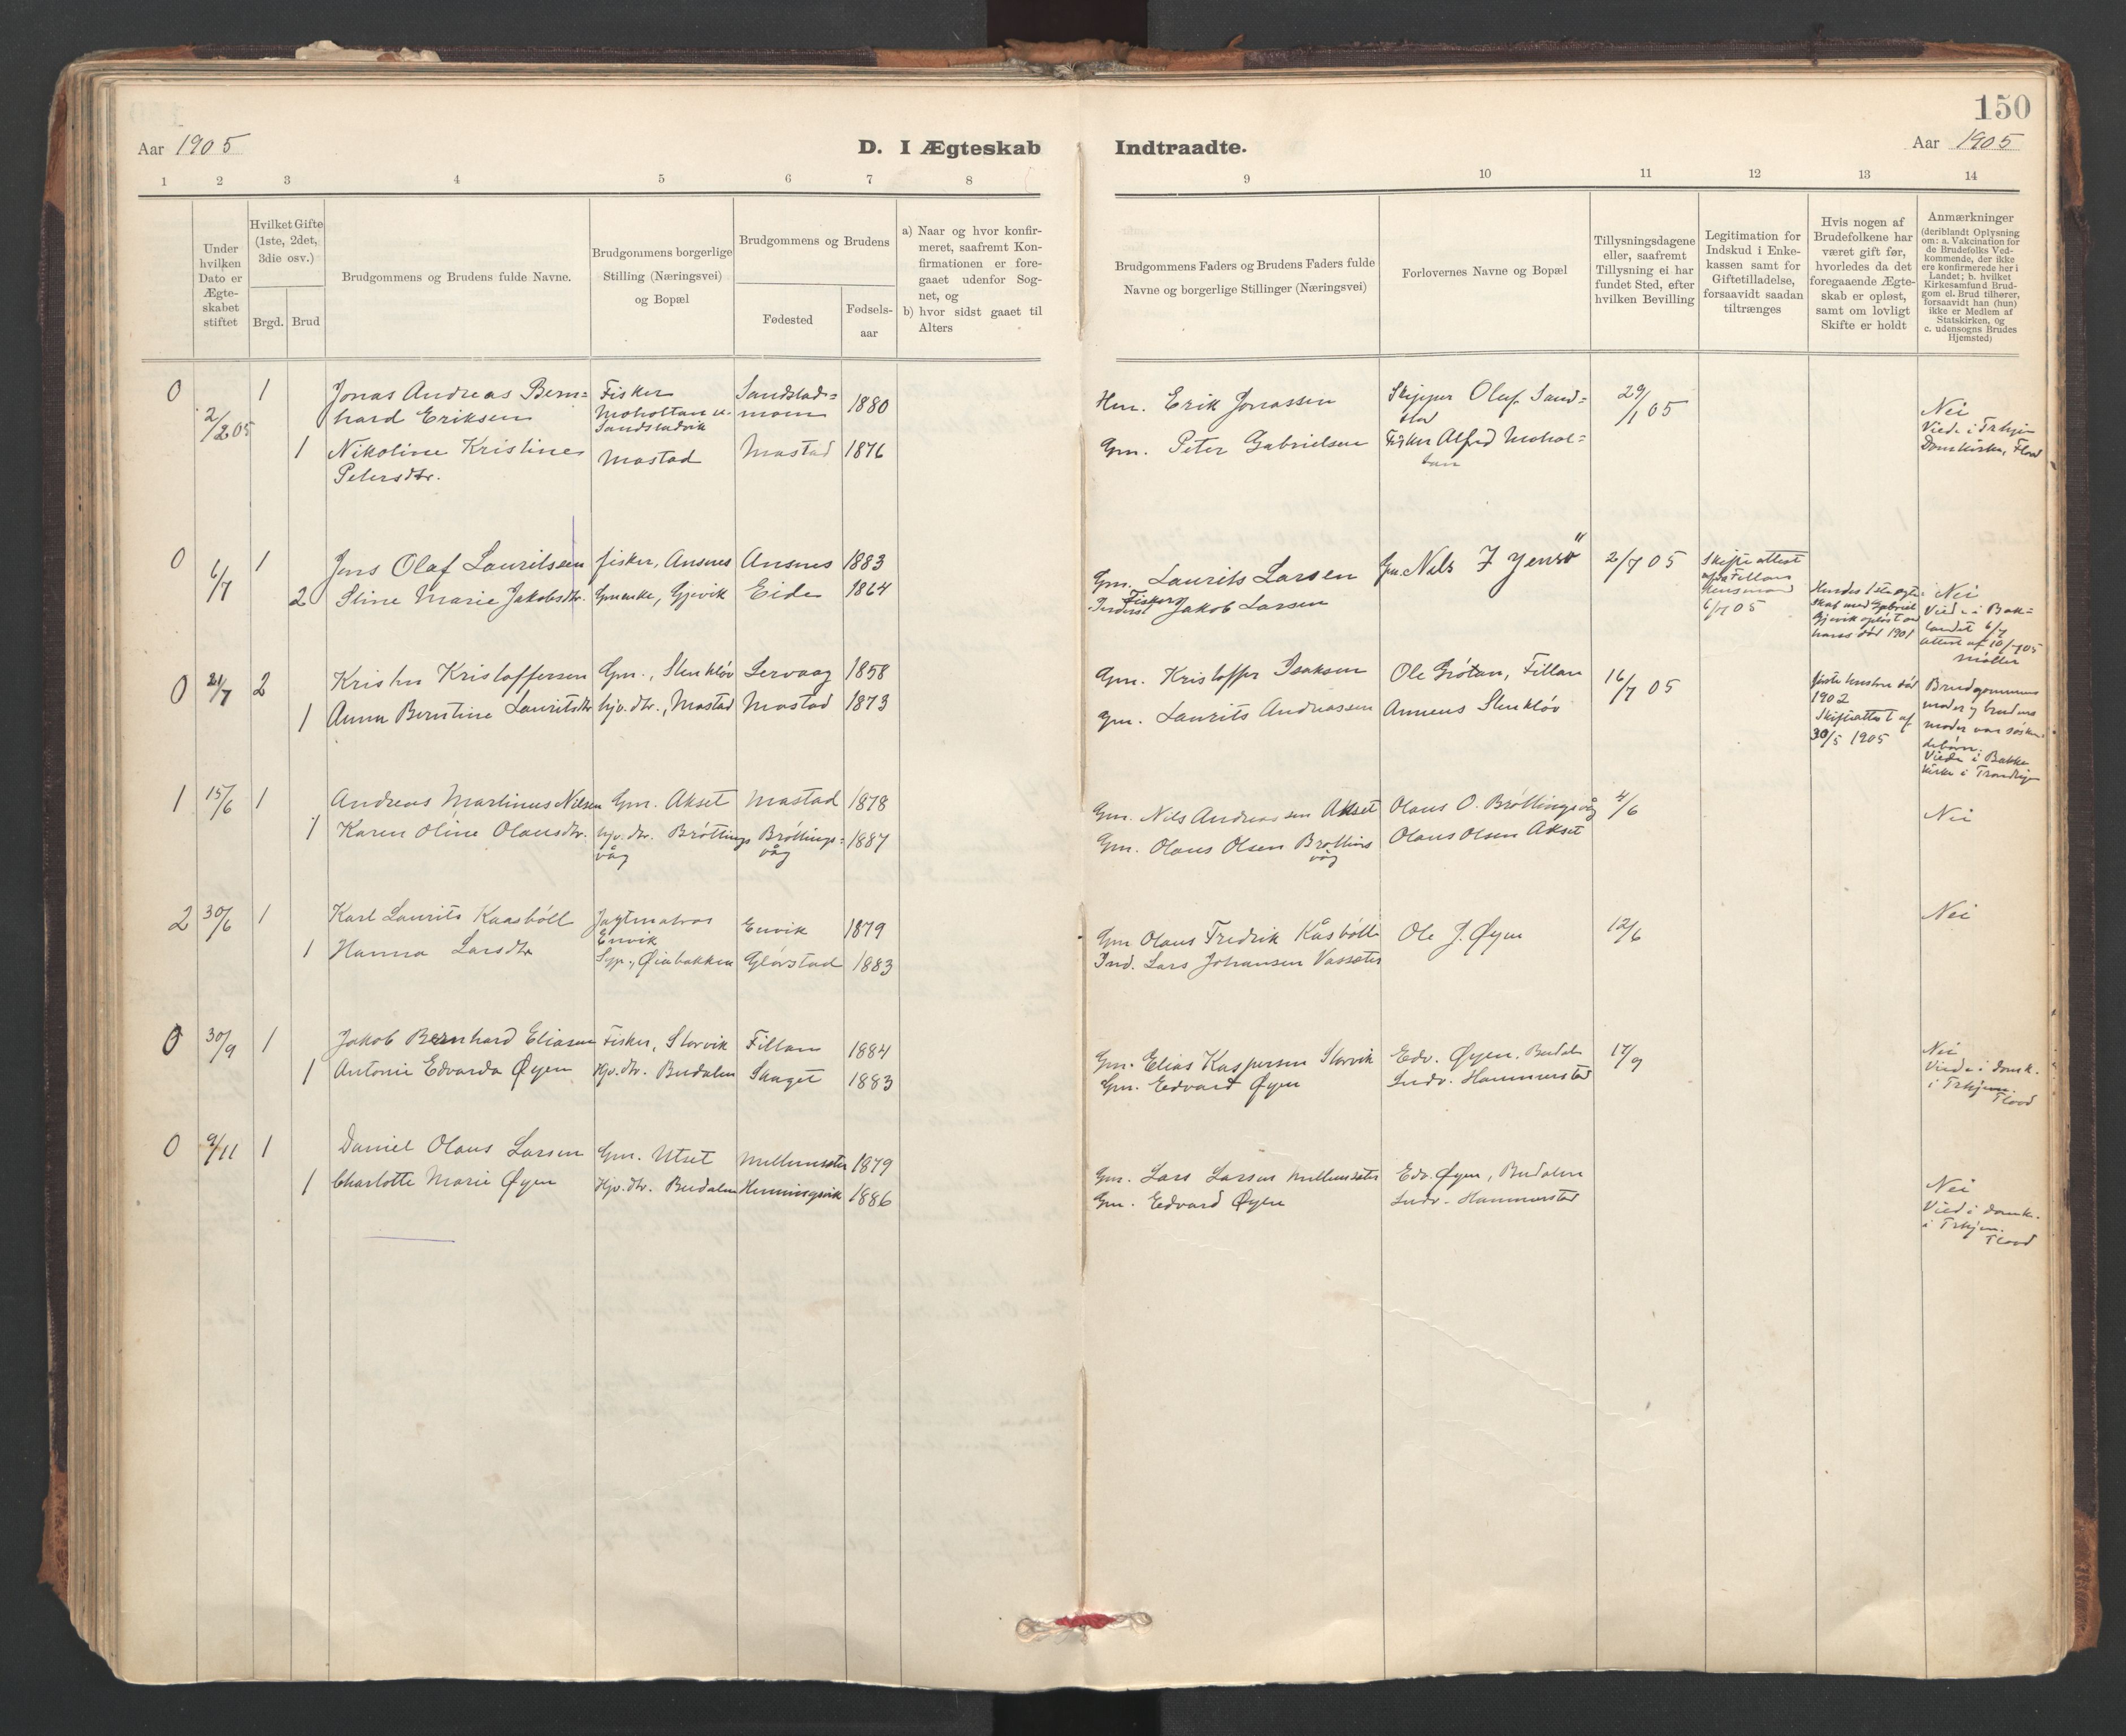 150
Aar 1905
D. I Ægteskab Indtraadte.
Aar 1905
1 2 3 4 5 6 7 8 9 10 11 12 13 14
Under
hvilken
Dato er
Ægte-
skabet
stiftet
Hvilket Gifte
(1ste, 2det,
3die osv.)
Brgd. Brud
Brudgommens og Brudens fulde Navne.
Brudgommens borgerlige
Stilling (Næringsvei)
og Bopæl
Brudgommens og Brudens
Fødested
Fødsels-
aar
a) Naar og hvor konfir-
meret, saafremt Kon-
firmationen er fore-
gaaet udenfor Sog-
net, og
b) hvor sidst gaaet til
Alters
Brudgommens Faders og Brudens Faders fulde
Navne og borgerlige Stillinger (Næringsvei)
Forlovernes Navne og Bopæl
Tillysningsdagene
eller, saafremt
Tillysning ei har
fundet Sted, efter
hvilken Bevilling
Legitimation for
Indskud i Enke-
kassen samt for
Giftetilladelse,
forsaavidt saadan
tiltrænges
Hvis nogen af
Brudefolkene har
været gift før,
hvorledes da det
foregaaende Ægte-
skab er opløst,
samt om lovligt
Skifte er holdt
Anmærkninger
(deriblandt Oplysning
om: a. Vakcination for
de Brudefolks Ved-
kommende, der ikke
ere konfirmerede her i
Landet; b. hvilket
Kirkesamfund Brud-
gom el. Brud tilhører,
forsaavidt han (hun)
ikke er Medlem af
Statskirken, og
c. udensogns Brudes
Hjemsted)
0 2/2 05 1
Jonas Andreas Bern=
hard Eriksen
Fisker
Moholtan u.
Sandstadvik
Sandstad=
mom
1880
Hm. Erik Jonassen
Skipper Oluf Sand=
stad
29/1 05
Nei
Viede i Trhjm
Domkirke, Flood
1 Nikoline Kristine
Petersdtr.
Mastad
Mastad
1876
Gm. Peter Gabrielsen
Fisker Alfred Mohol=
tan
0 6/7 1
Jens Olaf Lauritsen
fisker, Ansnes
Ansnes
1883
Gm. Laurits Larsen
Gm. Nils J Jensö
2/7 05
Skifteattest
fra Fillans
lensmand
6/7 05
2 Stine Marie Jakobsdtr.
Gmenke, Gjevik
Eide
1864
Inderst Fisker Jakob Larsen
Hendes 1ste ægte=
skab med Gabriel
Gjevik opløst ved
hans død 1901
Nei
Viede i Bak=
landet 6/7
attest af 10/7 05
Møller
0 21/7 2
Krister Kristoffersen
Gm., Stenkløv
Servaag
1858
Gm. Kristoffer Isaksen
Ole Grötan, Fillan
16/7 05
første hustru død
1902
Skifteattest af
30/5 1905
Brudgommens
moder og brudens
moder var søsken=
debörn.
Viede i Bakke
kirke i Trondhjem
1 Anna Berntine Lauritsdtr
hjv. dtr., Mastad
Mastad
1873
Gm. Laurits Andreassen
Anneus Stenklöv
1 15/6 1
Andreas Martinus Nilsen
Gm. Akset
Mastad
1878
Gm. Nils Andreassen Akset
Olaus O. Bröttingsvåg
4/6
Nei
1 Karen Oline Olausdtr.
hjv. dtr. Bröttings
våg
Bröttings=
våg
1887
Gm. Olaus Olsen Bröttings
våg
Olaus Olsen Akset
2 30/6 1
Karl Laurits Kaasböll
Jagtmatros
Envik
Envik
1879
Gm Olaus Fredrik Kåsböll
Ole J. Øyen
12/6
Nei
1 Hanna Larsdtr
Syp., Øiabakken
Glörstad
1883
Ind. Lars Johansen Vasseter
0 30/9 1
Jakob Bernhard Eliasen
Fisker, Storvik
Fillan
1884
Gm. Elias Kaspersen Storvik
Edv. Øyen. Budalen
17/9
Nei
Viede i Domk.
i Trhjem.
Flood
1 Antonie Edvarda Øyen
Hjv. dtr. Budalen
Skaget
1883
Gm. Edvard Øyen
Ludv. Hammerstad
0 9/11 1
Daniel Olaus Larsen
Gm. Utset
Mellemseter
1879
Gm. Lars Larsen Mellemseter
Edv. Øyen, Budalen
1 Charlotte Marie Øyen
Hjv. dtr. Budalen
Henningsvik
1886
Gm. Edvard Øyen
Ludv. Hammerstad
Nei
Vied i Domk.
i Trhjem.
Flood